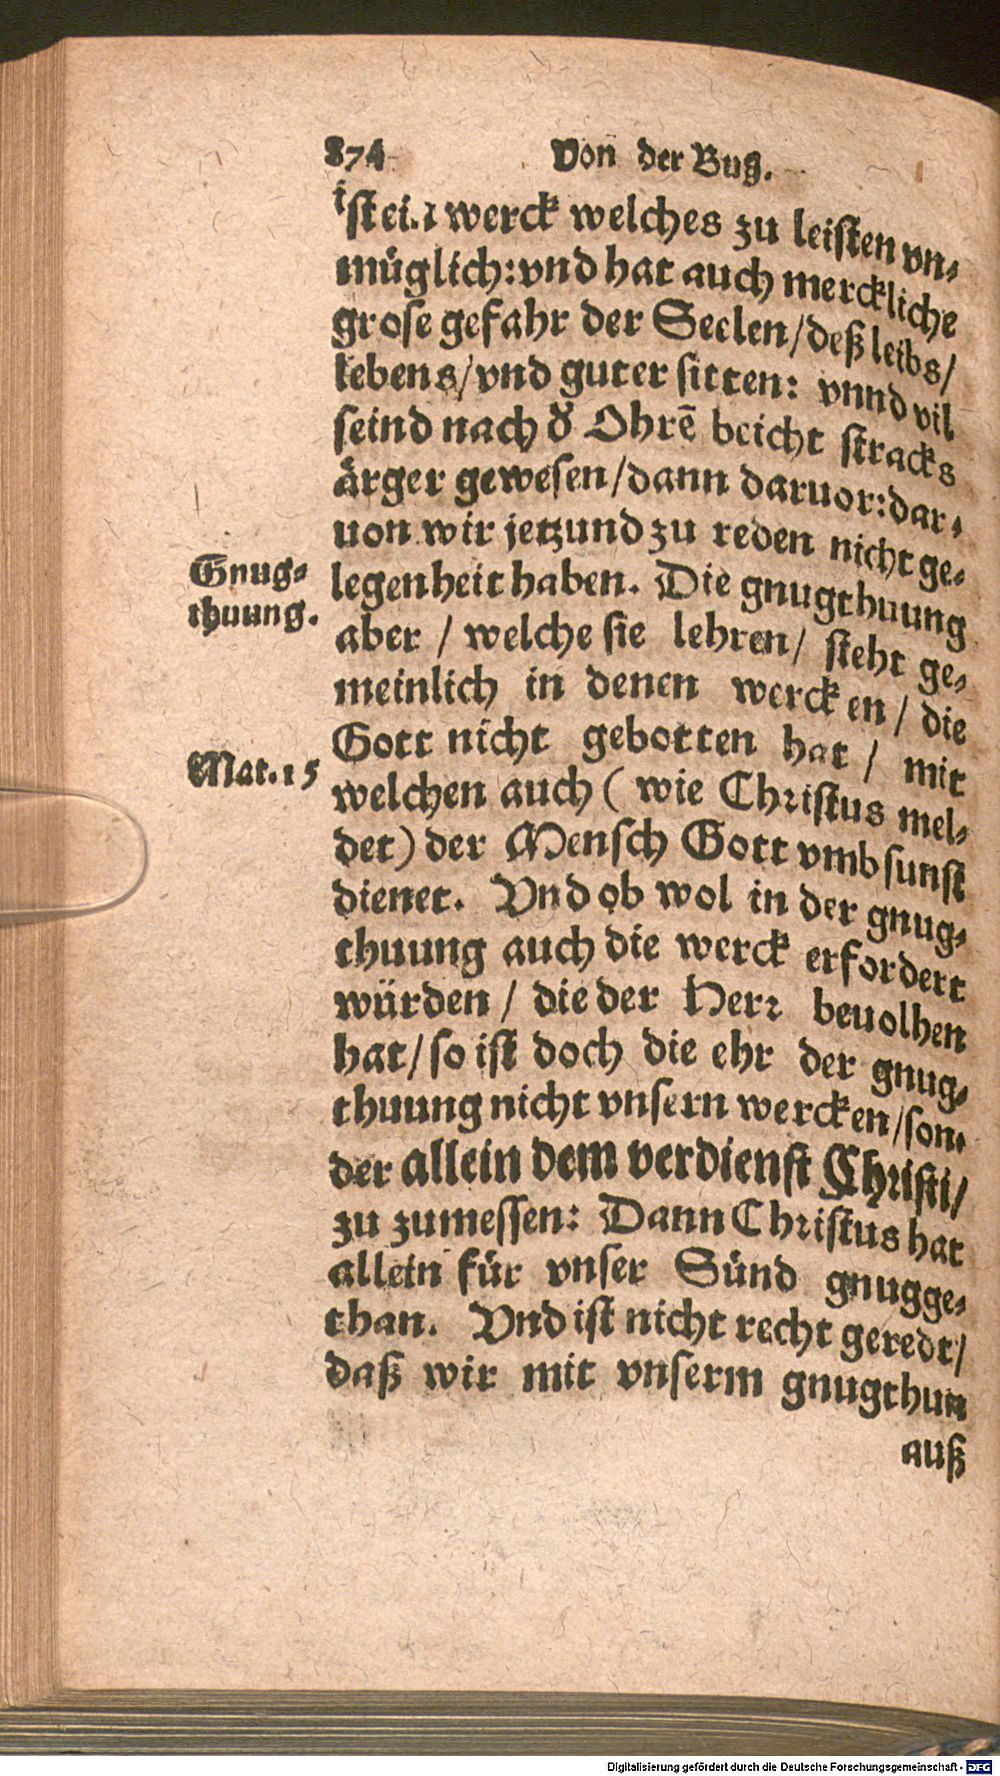 874 Von der Buß.
ist ein werck welches zu leisten vn⸗
müglich: vnd hat auch merckliche
grose gefahr der Seelen / deß leibs /
lebens / vnd guter sitten: vnnd vil
seind nach d' Ohrē beicht stracks
ärger gewesen / dann daruor: dar⸗
uon wir jetzund zu reden nicht ge⸗
Gnug⸗
thuung.
legenheit haben. Die gnugthuung
aber / welche sie lehren / steht ge⸗
meinlich in denen wercken / die
Gott nicht gebotten hat / mit
Mat. 15
welchen auch ( wie Christus mel⸗
det ) der Mensch Gott vmb sunst
dienet. Vnd ob wol in der gnug⸗
thuung auch die werck erfordert
würden / die der Herr beuolhen
hat / so ist doch die ehr der gnug⸗
thuung nicht vnsern wercken / son⸗
der allein dem verdienst Christi /
zu zumessen: Dann Christus hat
allein für vnser Sünd gnugge⸗
than. Vnd ist nicht recht geredt /
daß wir mit vnserm gnugthun
auß
Digitalisierung gefördert durch die Deutsche Forschungsgemeinschaft - DFG